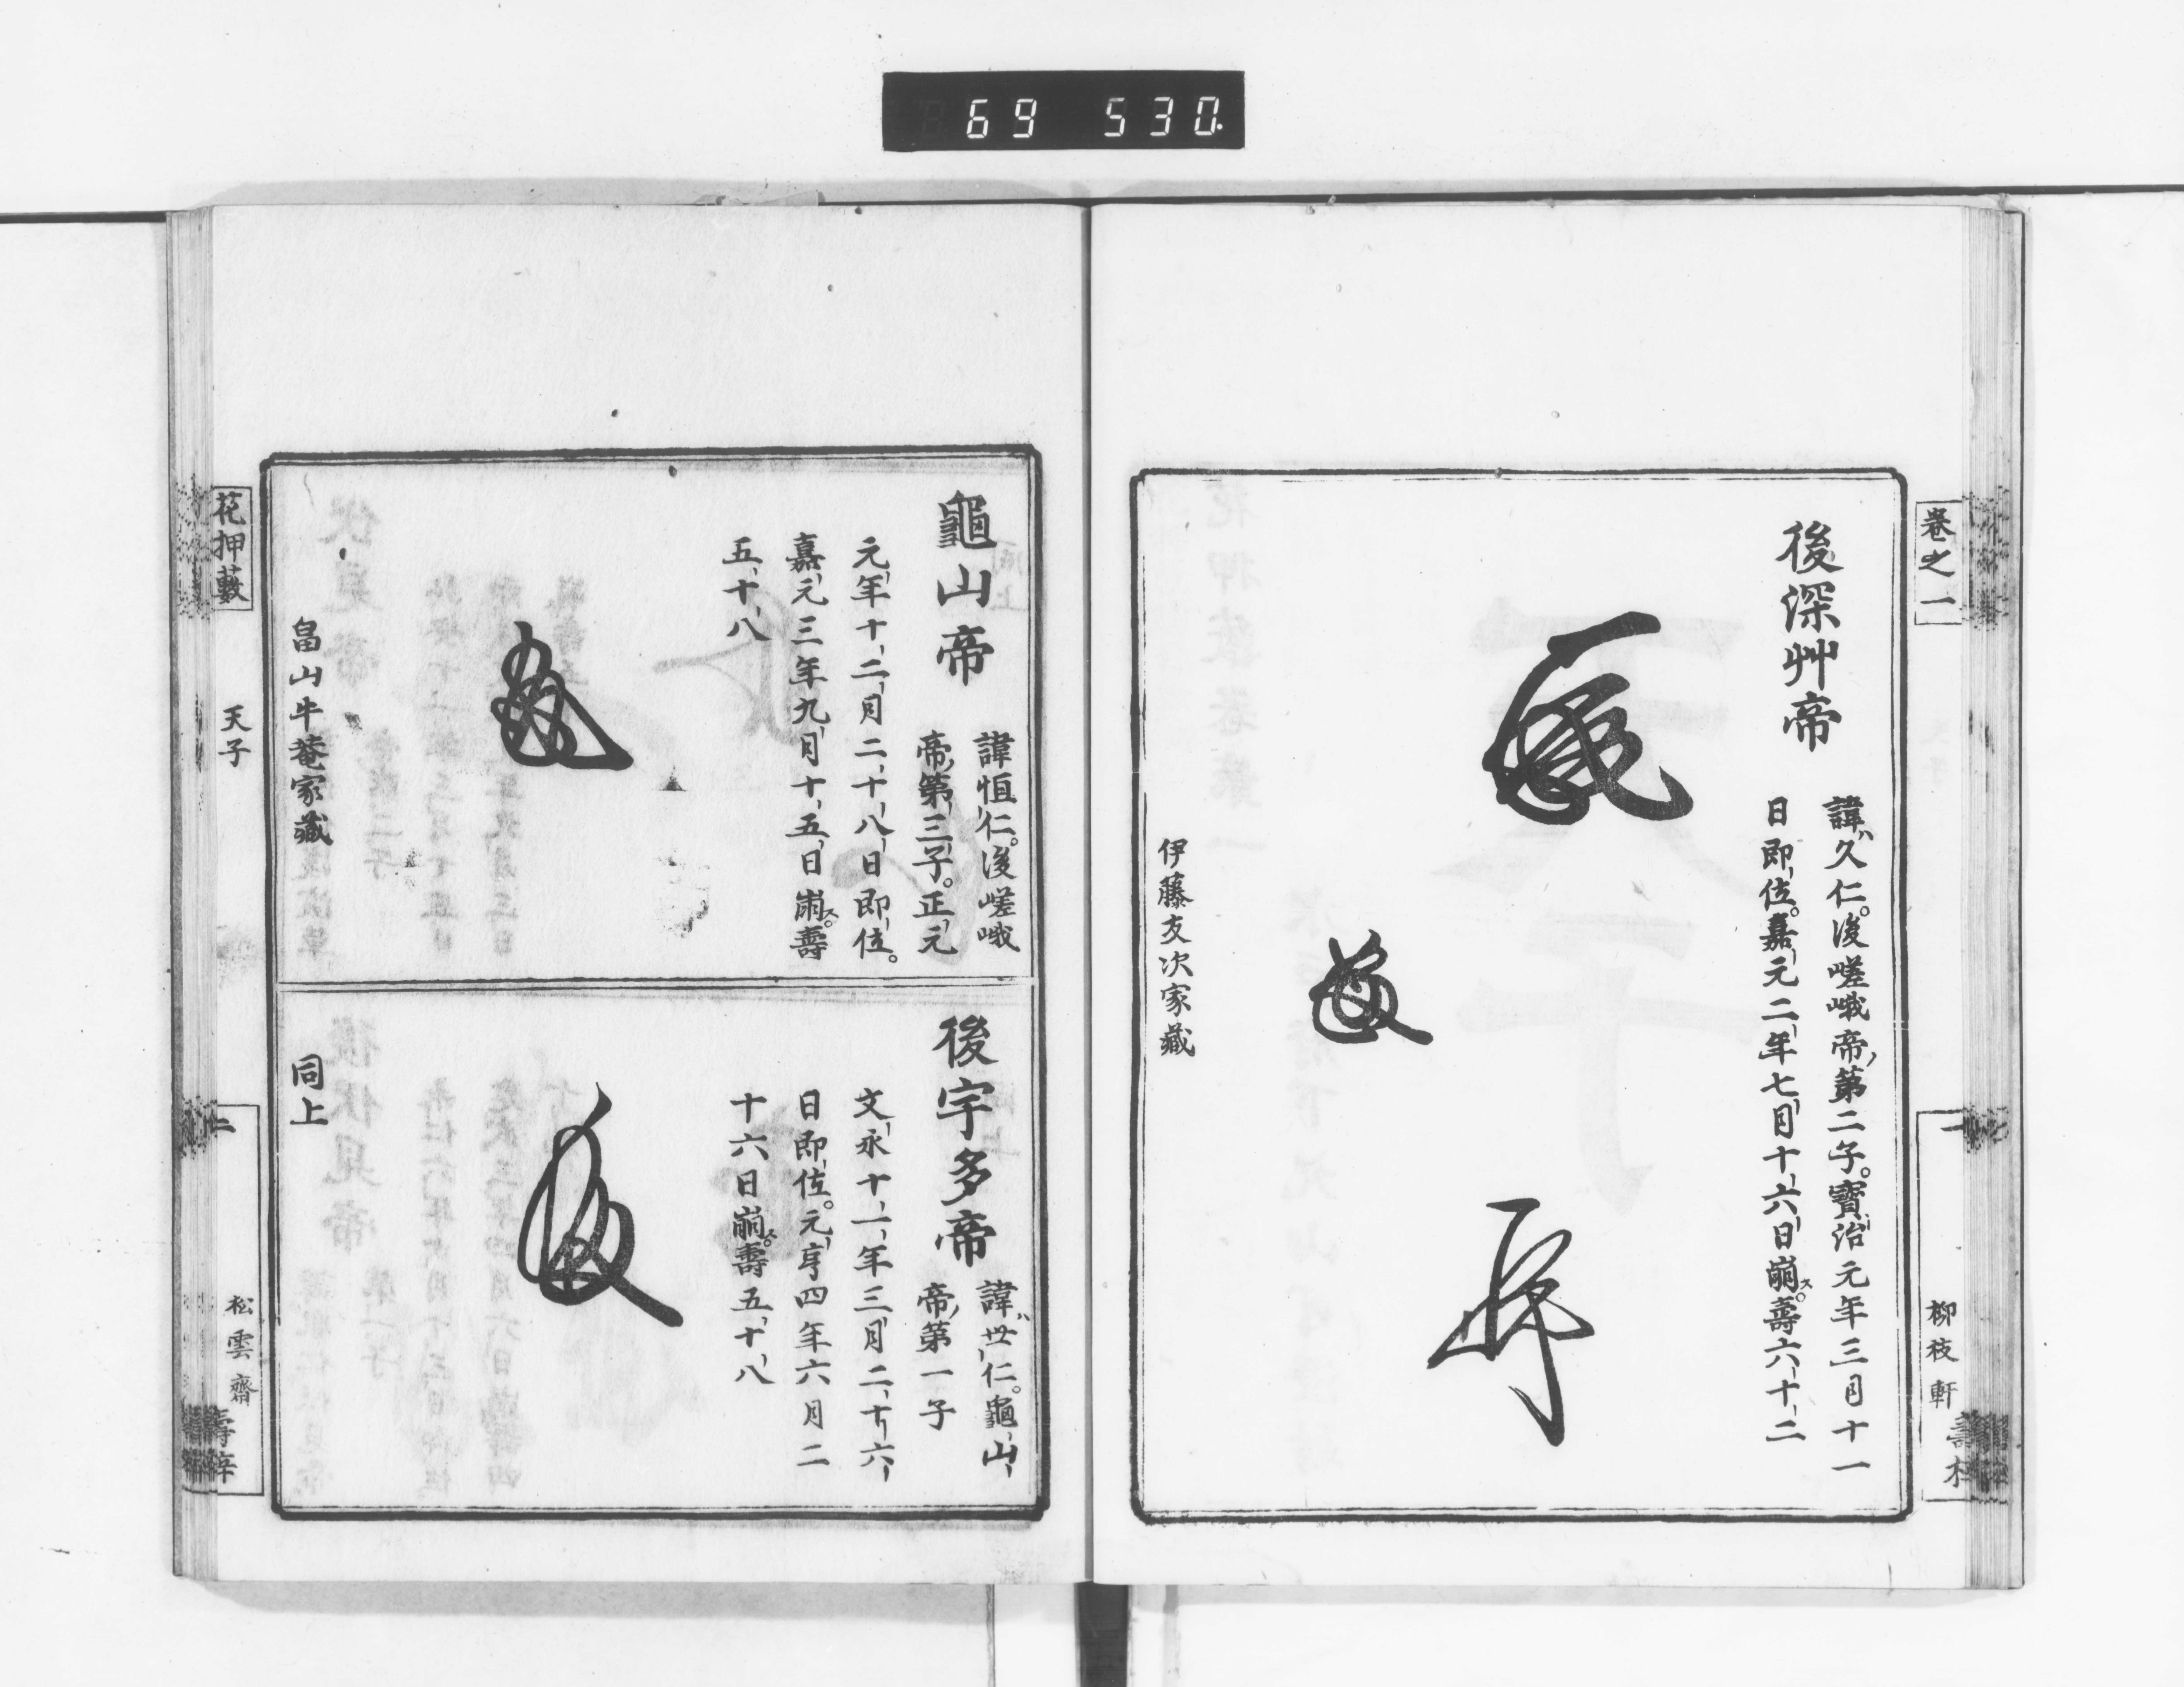 69 530.
卷之一
柳枝軒
後深艸帝
諱ハ久仁。後嵯峨帝ノ第二子。寶治元年三月十一
日即位。嘉元二年七月十六日崩ス。壽六十二
伊藤友次家藏
龜山帝
諱恒仁。後嵯峨
帝ノ第三子。正元
元年十二月二十八日即位。
嘉元三年九月十五日崩ス。壽
五十八
畠山牛菴家藏
後宇多帝
諱ハ世仁。龜山
帝ノ第一子
文永十一年三月二十六
日即位。元亨四年六月二
十六日崩ス。壽五十八
同上
花押藪
天子
二
松雲齋
壽梓